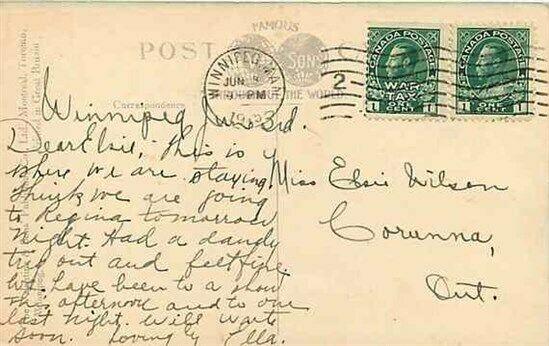 FAMOUS
POST C
SONS
THROUGHOUT THE WORLD
WINNIPEG MAN.
JUN 3
PM
2
CANADA POSTAGE
WAR TAX
1 ONE CENT 1
CANADA POSTAGE
1 ONE CENT 1
Correspondence
Montreal, Toronto,
in Great Britain
Winnipeg June 3rd.
Dear Elsie, This is
where we are staying
think we are going
to Regina tomorrow
night. Had a dandy
trip out and felt fine
We have been to a show
this afternoon and to one
last night. Will write
soon. Loving Ella.
Miss Elsie Wilson
Corunna,
Ont.